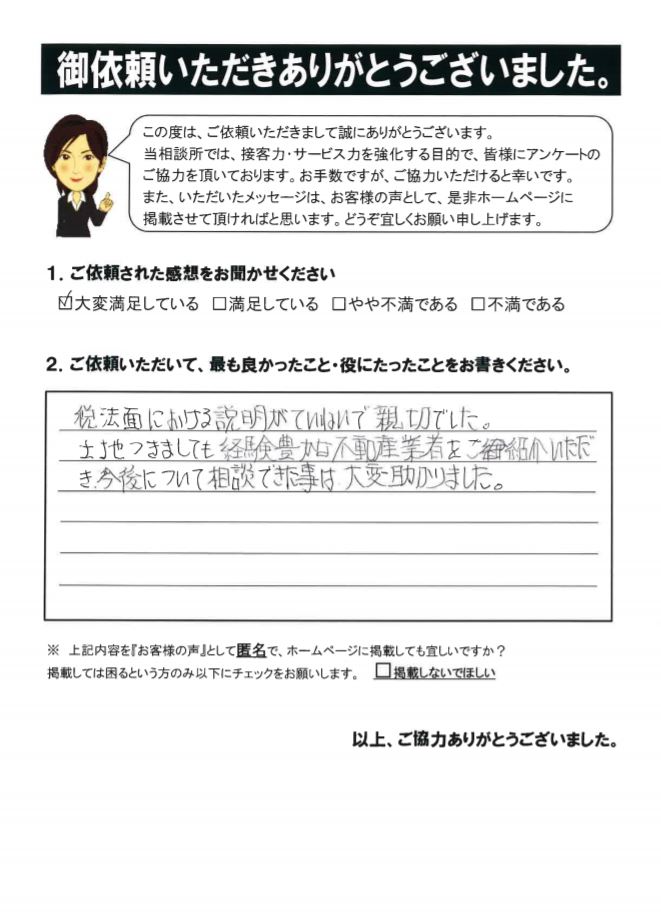 御依頼いただきありがとうございました。
この度は、ご依頼いただきまして誠にありがとうございます。
当相談所では、接客力・サービス力を強化する目的で、皆様にアンケートの
ご協力を頂いております。お手数ですが、ご協力いただけると幸いです。
また、いただいたメッセージは、お客様の声として、是非ホームページに
掲載させて頂ければと思います。どうぞ宜しくお願い申し上げます。
1. ご依頼された感想をお聞かせください
☑大変満足している □満足している □やや不満である □不満である
2. ご依頼いただいて、最も良かったこと・役にたったことをお書きください。
税法面における説明がていねいで親切でした。
土地つきましても経験豊かな不動産業者をご紹介いただ
き、今後について相談できた事は、大変助かりました。
※ 上記内容を『お客様の声』として匿名で、ホームページに掲載しても宜しいですか?
掲載しては困るという方のみ以下にチェックをお願いします。 □掲載しないでほしい
以上、ご協力ありがとうございました。